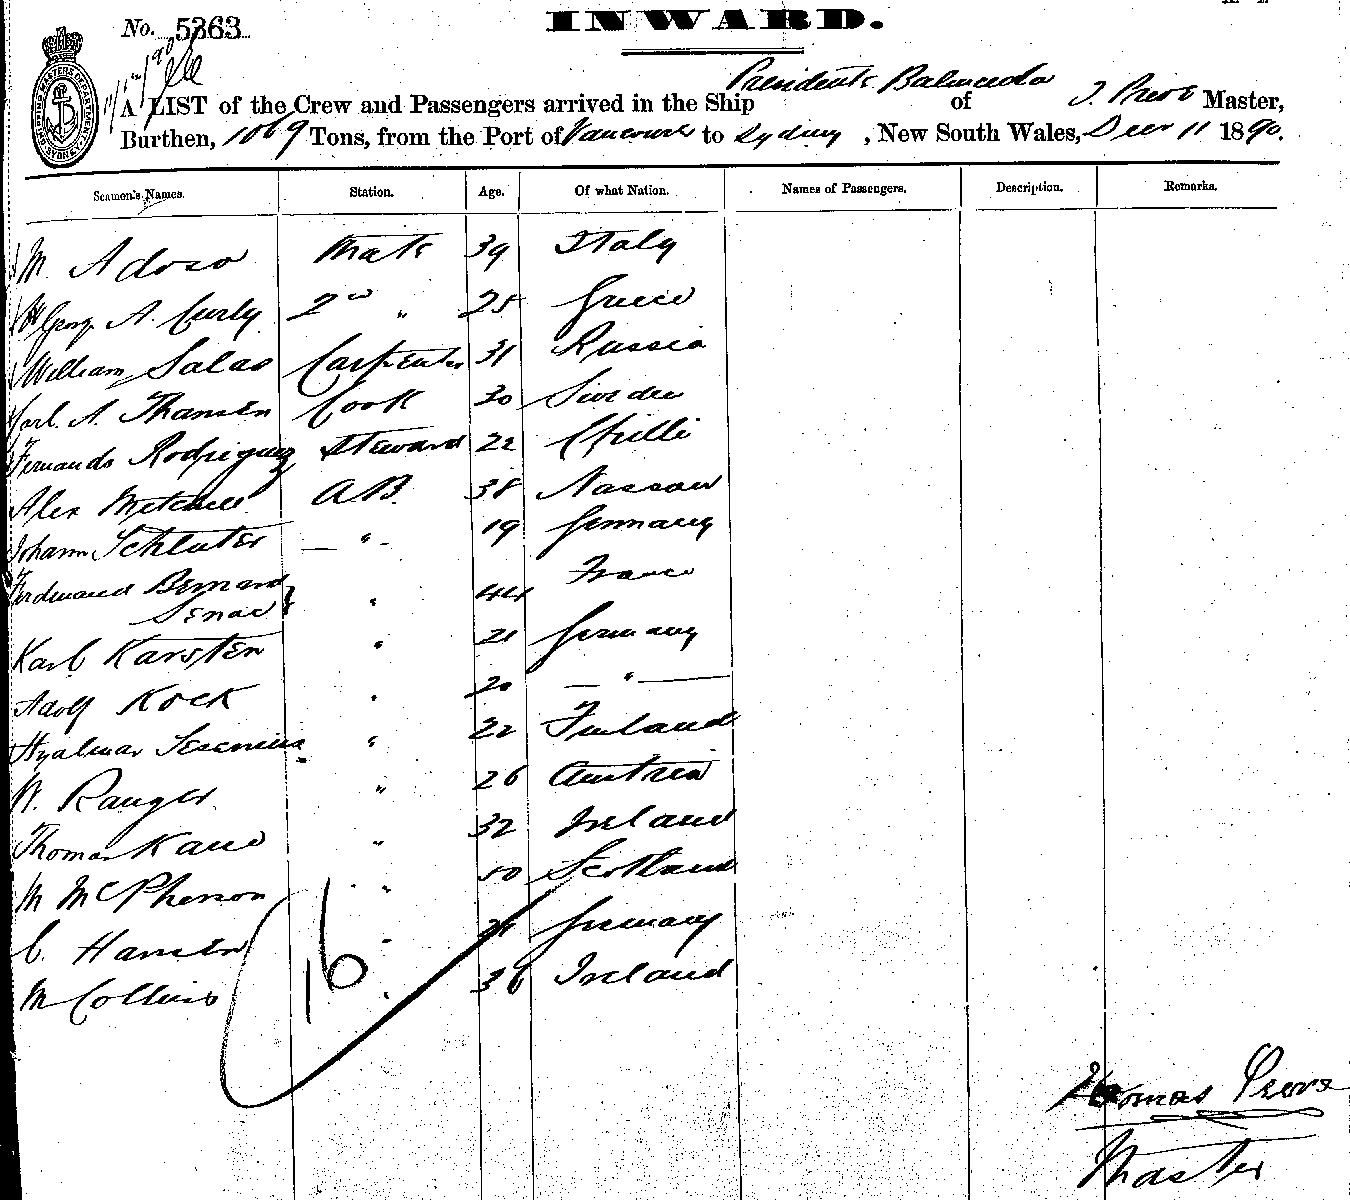 INWARD.
No. 5363
SHIPPING MASTERS DEPARTMENT SYDNEY
Presidente Balmaceda
A LIST of the Crew and Passengers arrived in the Ship of T. Master,
Burthen, 1069 Tons, from the Port of Vancouver to Sydney, New South Wales, Decr 11 1890.
Seamen's Names. Station. Age. Of what Nation. Names of Passengers. Description. Remarks.
M. Mate 39 Italy
Georg. A. Curly 2nd " 25 Greece
William Salas Carpenter 31 Russia
Carl. A. Thansen Cook 30 Sweden
Fernando Rodriguez Steward 22 Chilli
Alex Mitchell AB. 38 Nassau
Johann Schluter " 19 Germany
Ferdinand Bernard " 44 France
Senac
Karl Karsten " 21 Germany
Adolf Kock " 20 "
Hyalmar " 22 Finland
W. Ranger " 26 Austria
Thomas Kane " 32 Ireland
M McPherson " 50 Scotland
C. Hansen " Germany
M Collins " 36 Ireland
16
Thomas
Master